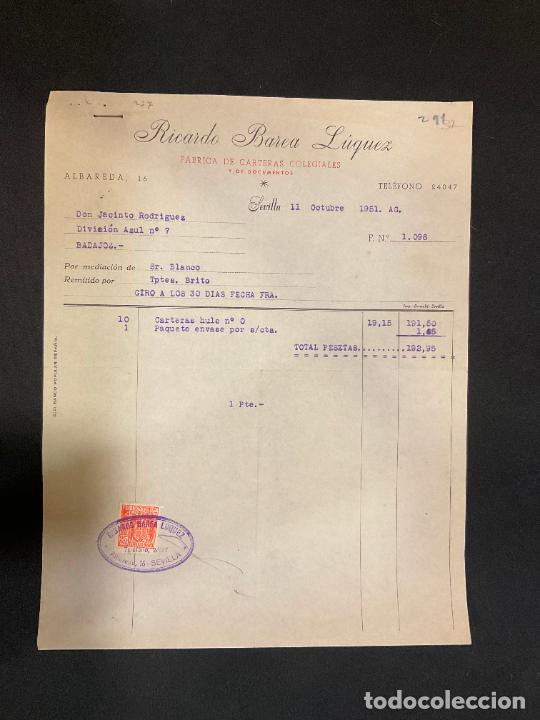 227
291
Ricardo Barea Lúquez
FÁBRICA DE CARTERAS COLEGIALES
Y DE DOCUMENTOS
ALBAREDA, 16
TELÉFONO 24047
Sevilla 11 Octubre 1951. AG.
Don Jacinto Rodriguez
División Azul nº 7
BADAJOZ.-
F. N.º 1.096
Por mediación de Sr. Blanco
Remitido por Tptes. Brito
GIRO A LOS 30 DIAS FECHA FRA.
10 Carteras hule nº 0 19,15 191,50
1 Paquete envase por s/cta. 1,65
TOTAL PESETAS.......... 192,95
1 Pts.-
BANCO POPULAR ESPAÑOL
RICARDO BAREA LUQUEZ
16 - SEVILLA
todocoleccion